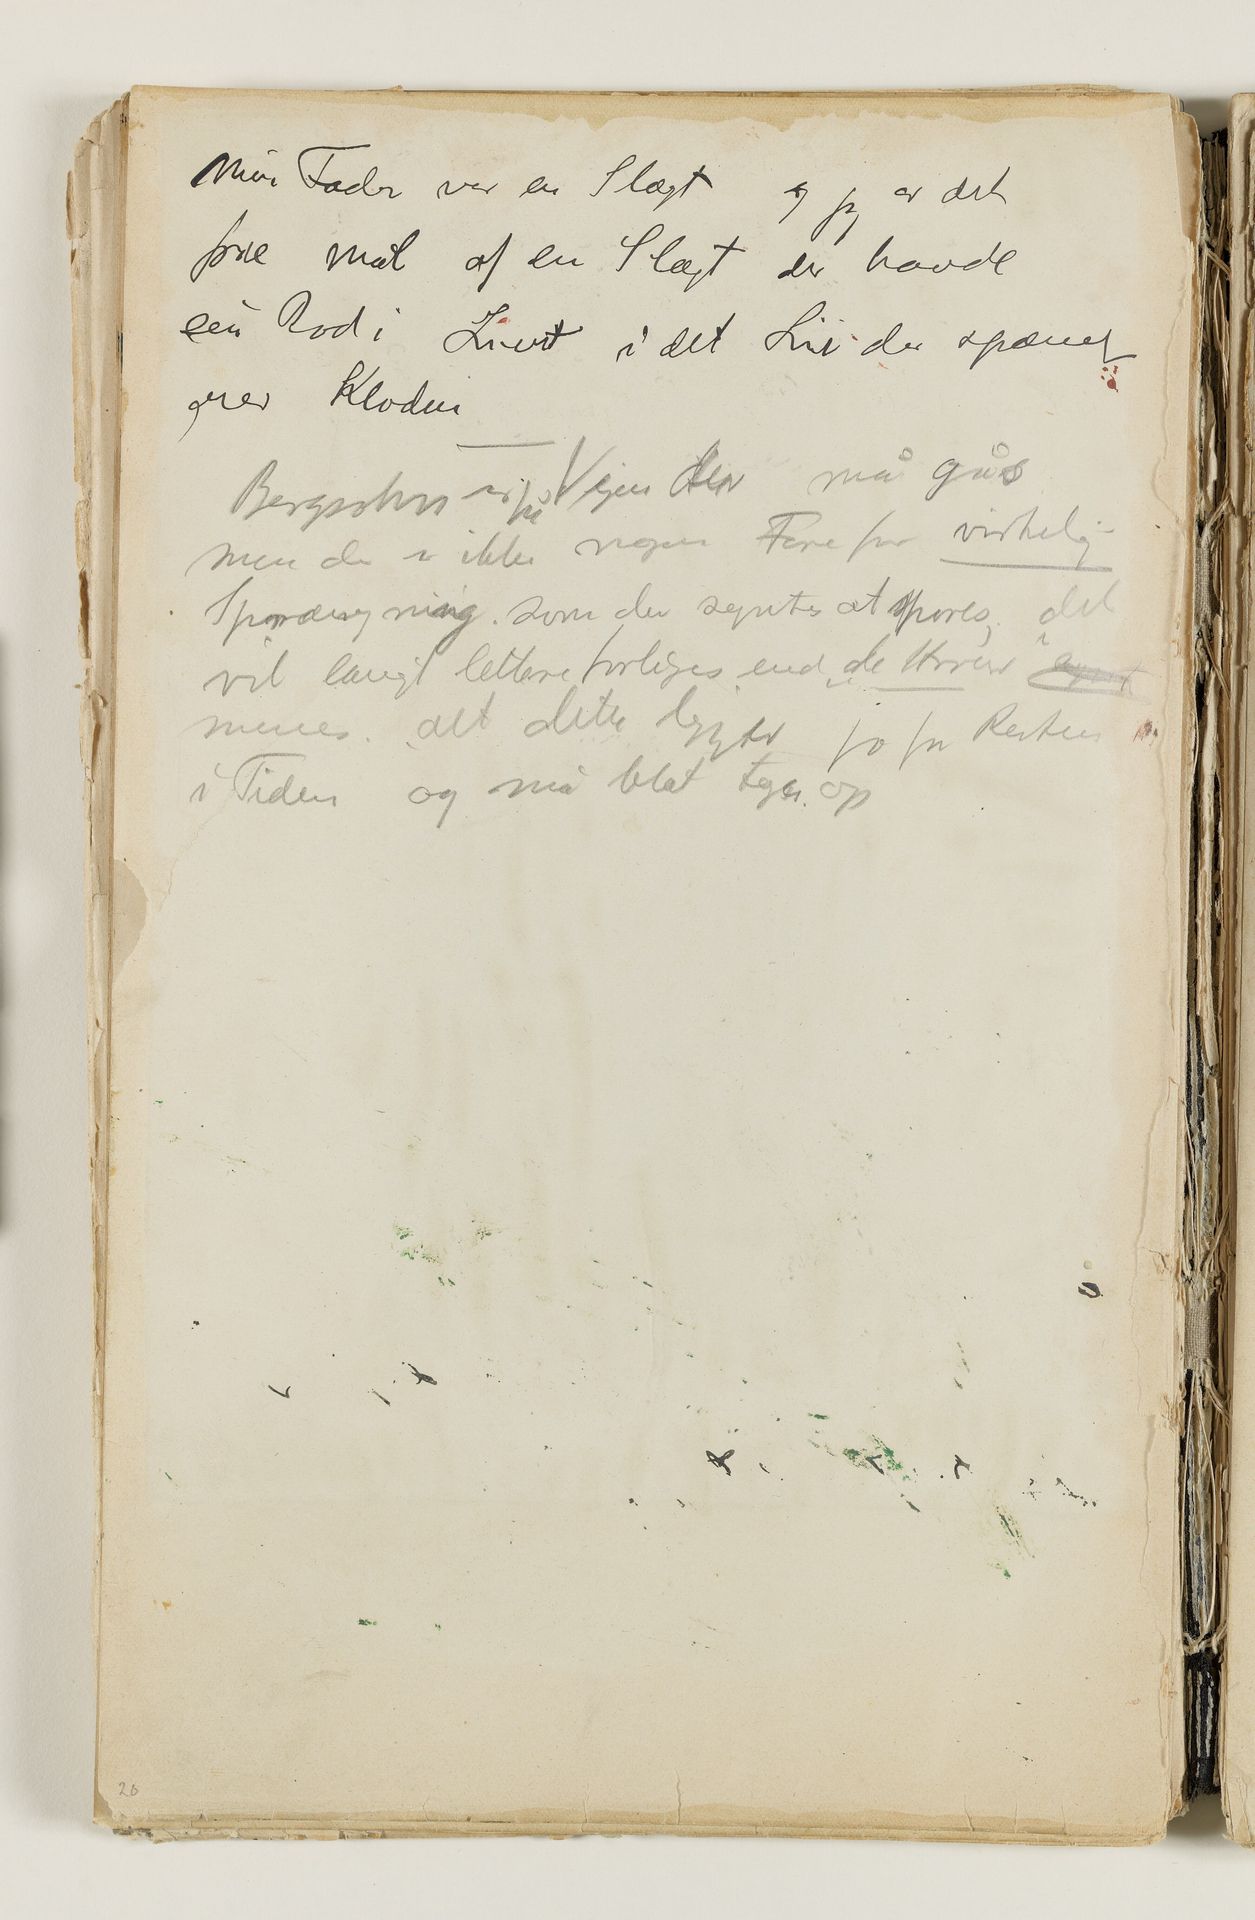 Min Fader var en Slægt og jeg er det
frie mål af en Slægt der havde
een Rod i Livet i det Liv der spænet
over Kloden
Bergsohn er på Vejen der må gås
men der er ikke nogen Fare for virkelig
Sporængning. som der syntes at spores, det
vil langt lettere forliges end de
menes. alt dette ligger jo for Resten
i Tiden og må blot tages op
20